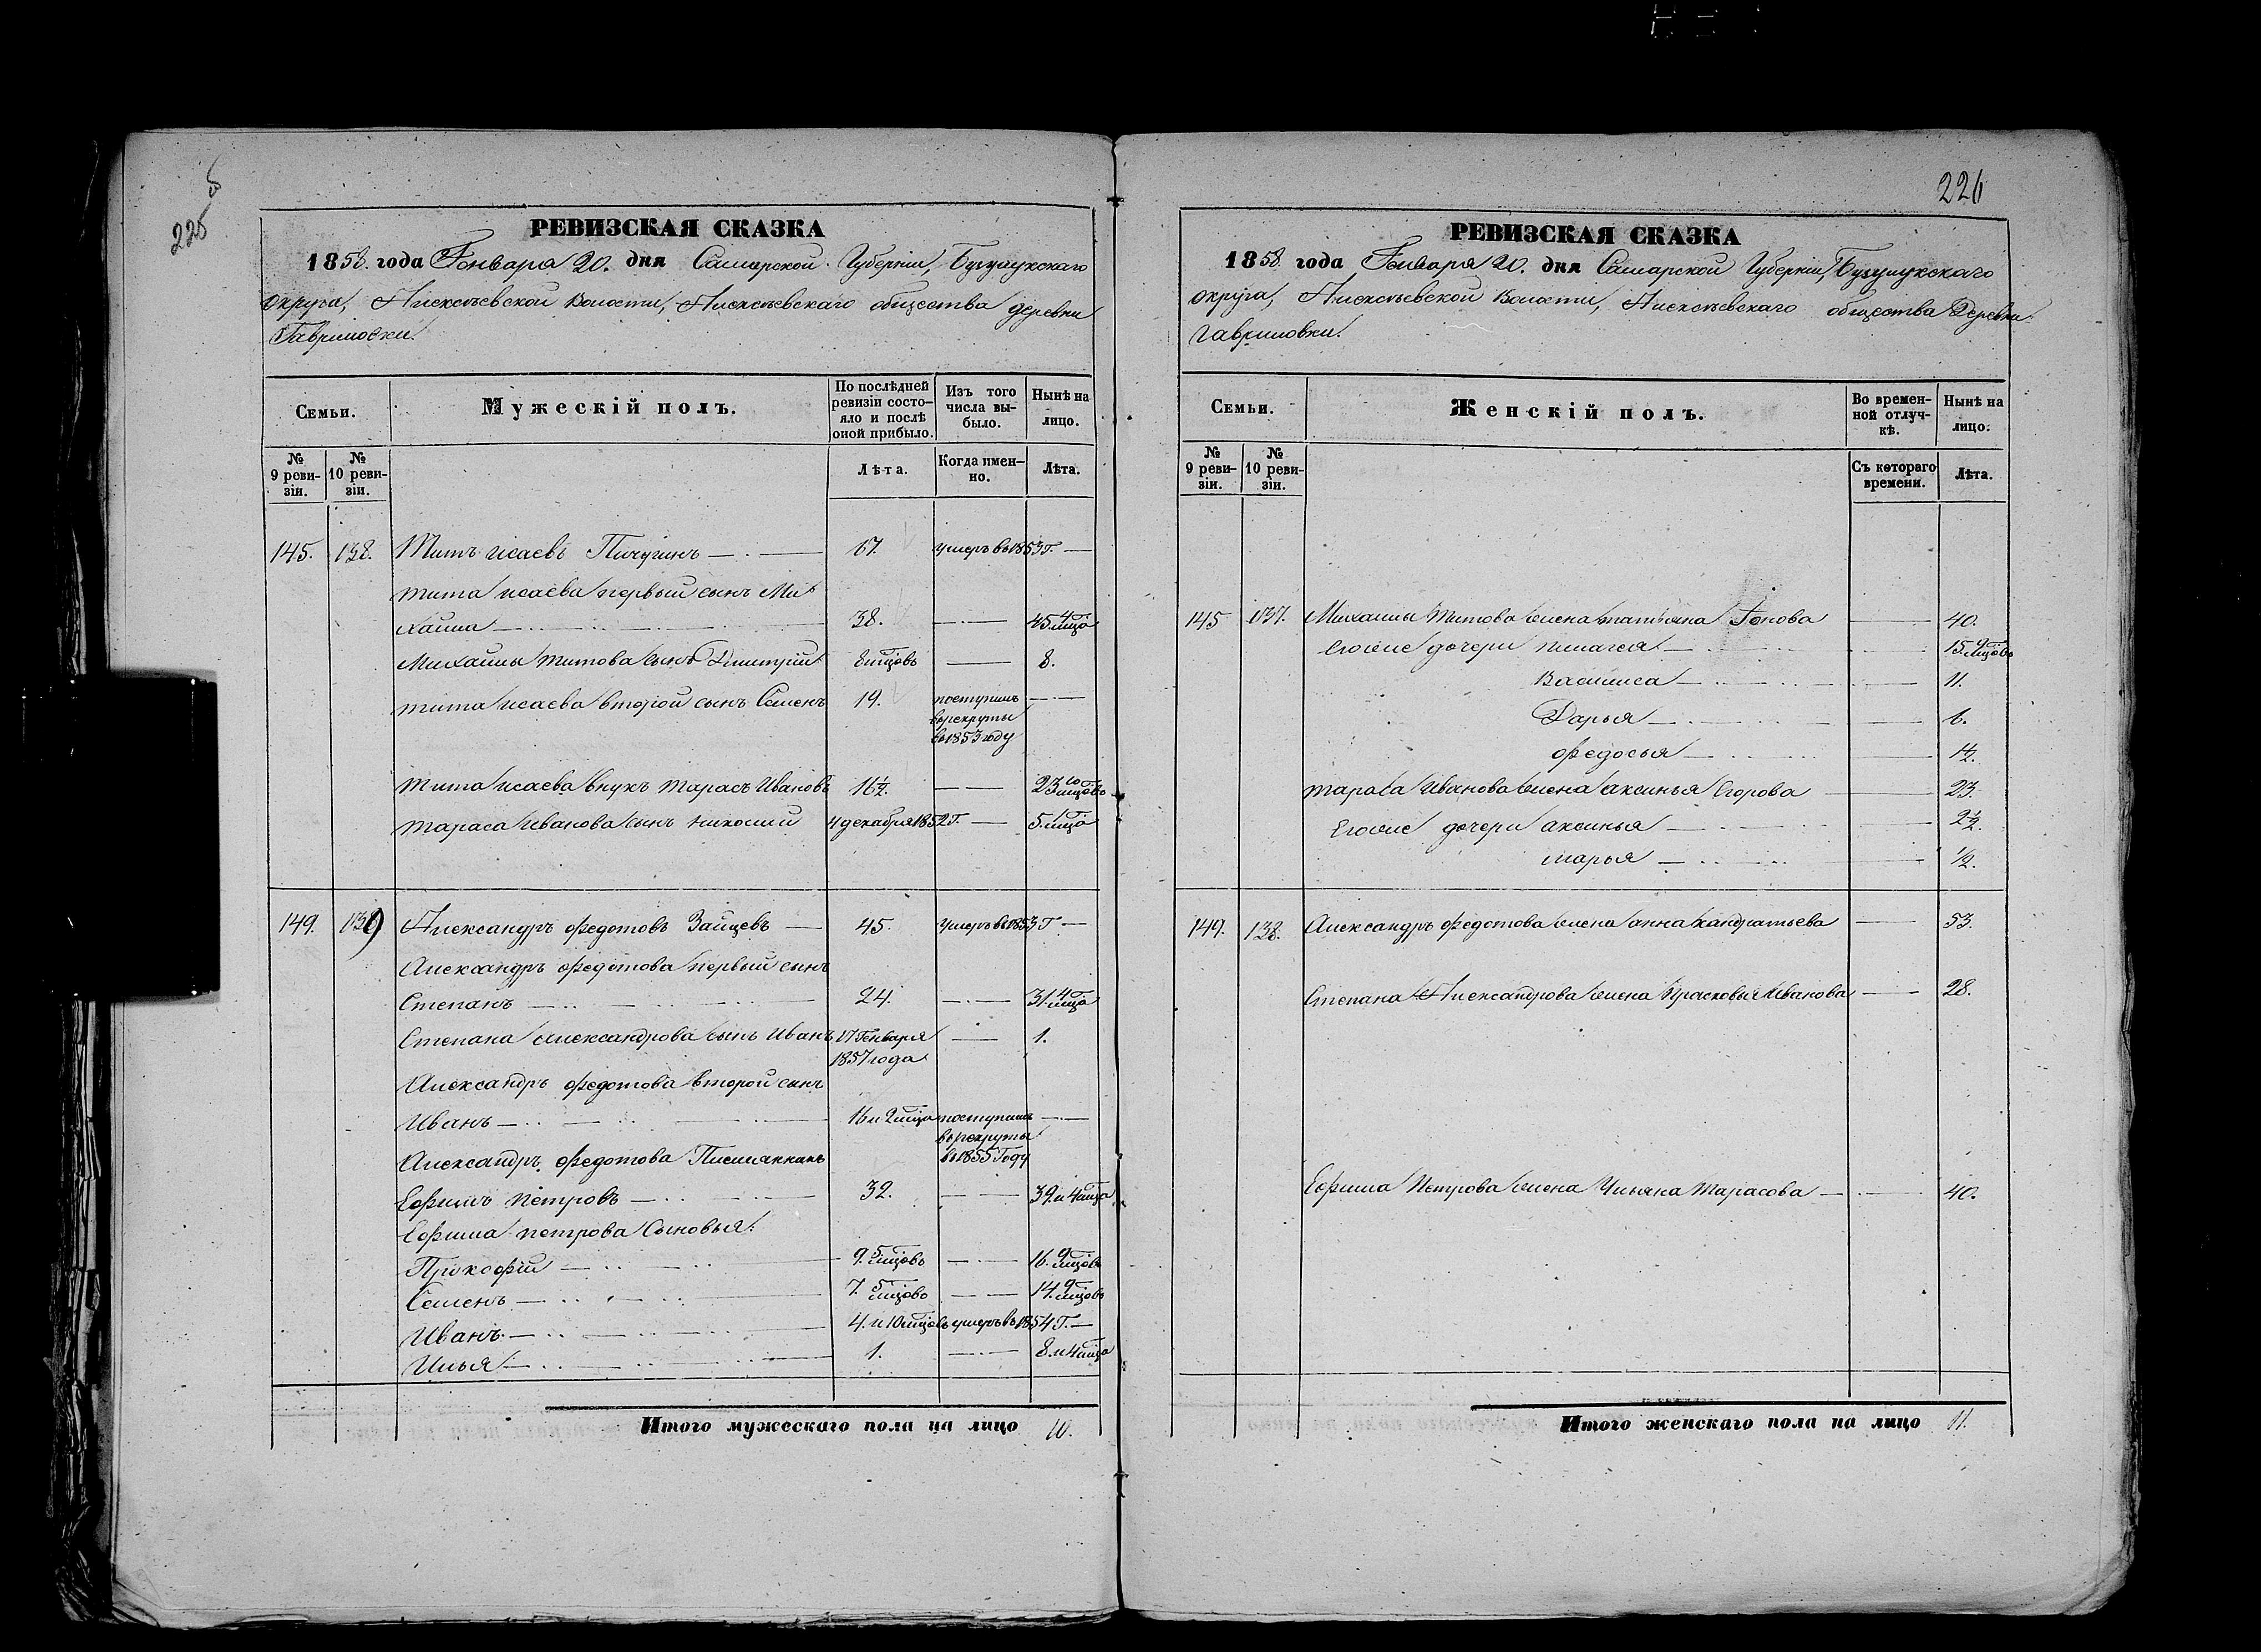 225 об
РЕВИЗСКАЯ СКАЗКА
1858. года Генваря 20. дня Самарской Губерніи, Бузулукскаго
округа, Алексѣевской волости, Алексѣевскаго общества деревни
Гавриловки.
Семьи.
Мужескій полъ.
По послѣдней ревизіи состояло и послѣ оной прибыло.
Изъ того числа выбыло.
Нынѣ на лицо.
№ 9 ревизіи.
№ 10 ревизіи.
Лѣта.
Когда именно.
Лѣта.
145. 138. Титъ Исаевъ Пичугинъ 67. умеръ въ 1853 г.
Тита Исаева первый сынъ Ми
хайла 38. 45. 4 мца
Михайлы Титова сынъ Дмитрій 8 мцовъ 8.
Тита Исаева второй сынъ Семенъ 19. поступилъ
въ рекруты
въ 1853 году
Тита Исаева внукъ Тарасъ Ивановъ 16½. 23 10 мцовъ
Тараса Иванова сынъ Николай 4 декабря 1852 г. 5. 1 мца
149. 139 Александръ Федотовъ Зайцевъ 45. умеръ въ 1853 г
Александръ Федотова первый сынъ
Степанъ 24. 31. 4 мца
Степана Александрова сынъ Иванъ 17 Генваря 1.
1857 года
Александръ Федотова второй сынъ
Иванъ 16 и 2 мца поступилъ
въ рекруты
въ 1855 году
Александръ Федотова Племянникъ
Ефимъ Петровъ 32. 39. и 4 мца
Ефима Петрова сыновья:
Прокофій 9. 5 мцовъ 16. 9 мцовъ
Семенъ 7. 5 мцовъ 14. 9 мцовъ
Иванъ 4. и 10 мцовъ умеръ въ 1854 г.
Илья 1. 8. и 4 мца
Итого мужескаго пола на лицо 10.
226
РЕВИЗСКАЯ СКАЗКА
1858 года Генваря 20. дня Самарской Губерніи, Бузулукскаго
округа, Алексѣевской волости, Алексѣевскаго общества Деревни
Гавриловки.
Семьи.
Женскій полъ.
Во временной отлучкѣ.
Нынѣ на лицо.
№ 9 ревизіи.
№ 10 ревизіи.
Съ котораго времени.
Лѣта.
145 137. Михайлы Титова жена Татьяна 40.
Егоже дочери Пелагея 15. 9 мцовъ
Василиса 11.
Дарья 6.
Федосья 1½.
Тараса Иванова жена Аксинья Егорова 23.
Егоже дочери Аксинья 2½.
Марья ½.
149. 138. Александръ Федотова жена Анна Кандратьева 53.
Степана Александрова жена Прасковья Иванова 28.
Ефима Петрова жена Ульяна Тарасова 40.
Итого женскаго пола на лицо 11.